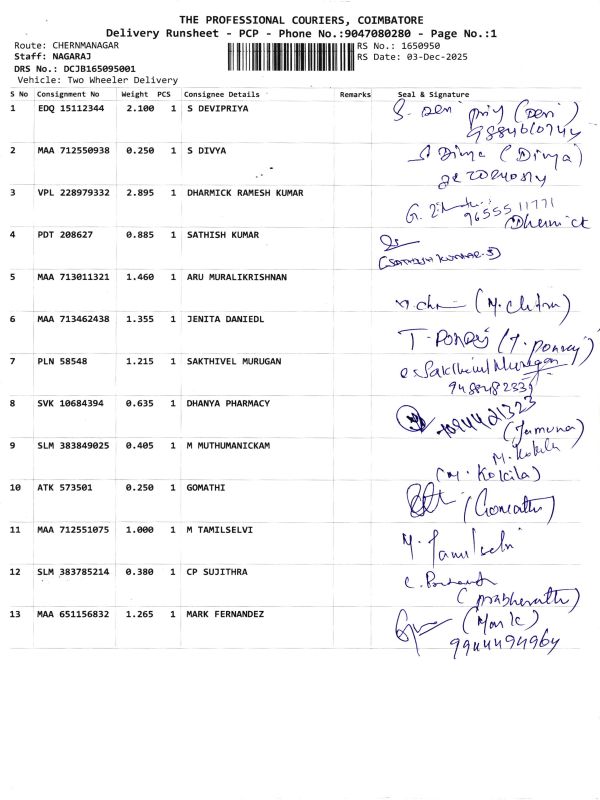 THE PROFESSIONAL COURIERS, COIMBATORE
Delivery Runsheet - PCP - Phone No.:9047080280 - Page No.:1
Route: CHERNMANAGAR RS No.: 1650950
Staff: NAGARAJ RS Date: 03-Dec-2025
DRS No.: DCJB165095001
Vehicle: Two Wheeler Delivery
S No Consignment No Weight PCS Consignee Details Remarks Seal & Signature
1 EDQ 15112344 2.100 1 S DEVIPRIYA
2 MAA 712550938 0.250 1 S DIVYA (Divya)
3 VPL 228979332 2.895 1 DHARMICK RAMESH KUMAR
9655511771
4 PDT 208627 0.885 1 SATHISH KUMAR
(SATHISH KUMAR.S)
5 MAA 713011321 1.460 1 ARU MURALIKRISHNAN
(M. Chitra)
6 MAA 713462438 1.355 1 JENITA DANIEDL
T. Ponraj (T. ponraj)
7 PLN 58548 1.215 1 SAKTHIVEL MURUGAN
8 SVK 10684394 0.635 1 DHANYA PHARMACY
(Jamuna)
M. Kokila
9 SLM 383849025 0.405 1 M MUTHUMANICKAM
(M. Kokila)
10 ATK 573501 0.250 1 GOMATHI
(Gomathi)
11 MAA 712551075 1.000 1 M TAMILSELVI
M. Tamilselvi
12 SLM 383785214 0.380 1 CP SUJITHRA
13 MAA 651156832 1.265 1 MARK FERNANDEZ (Mark)
9944494964